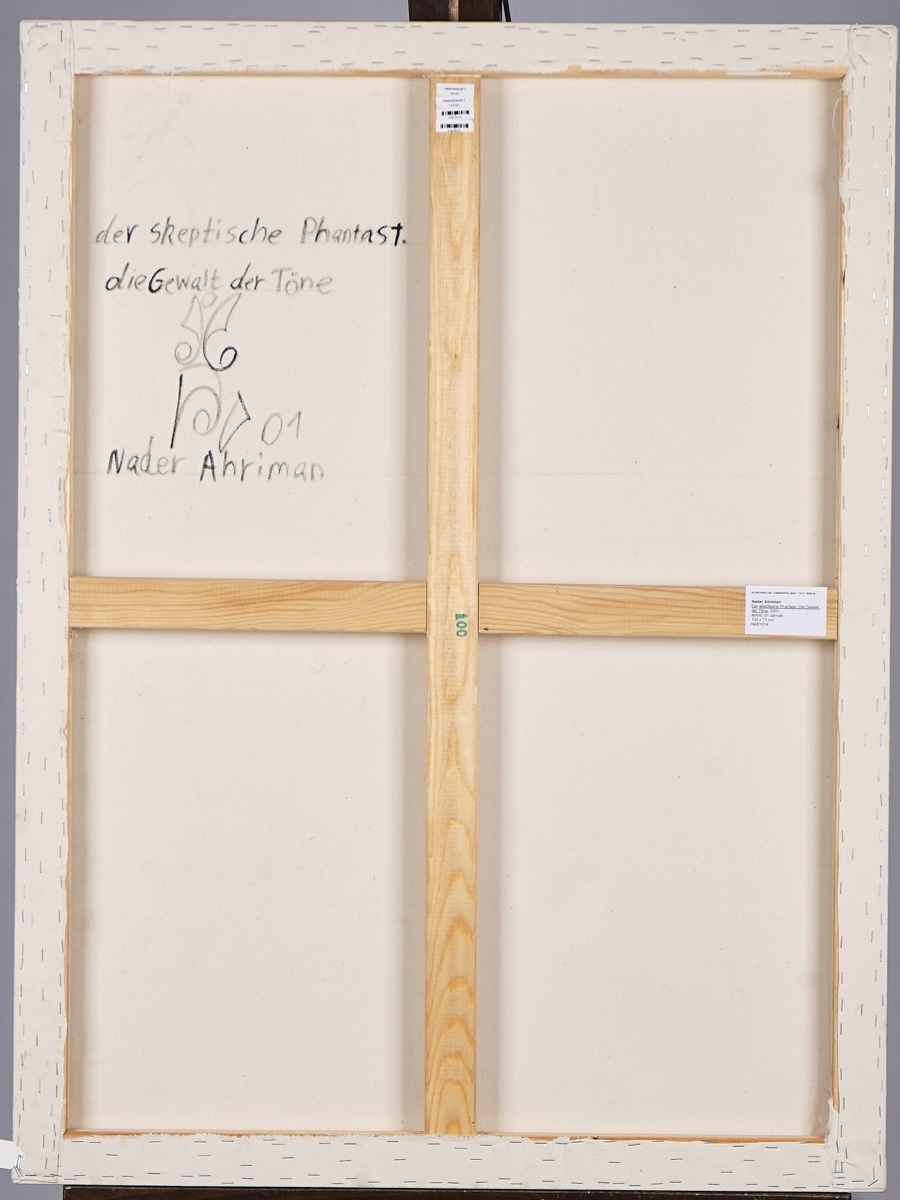 der skeptische Phantast.
die Gewalt der Töne
01
Nader Ahriman
100
Nader Ahriman
Der skeptische Phantast. Die Gewalt
der Töne, 2001
acrylic on canvas
100 x 70 cm